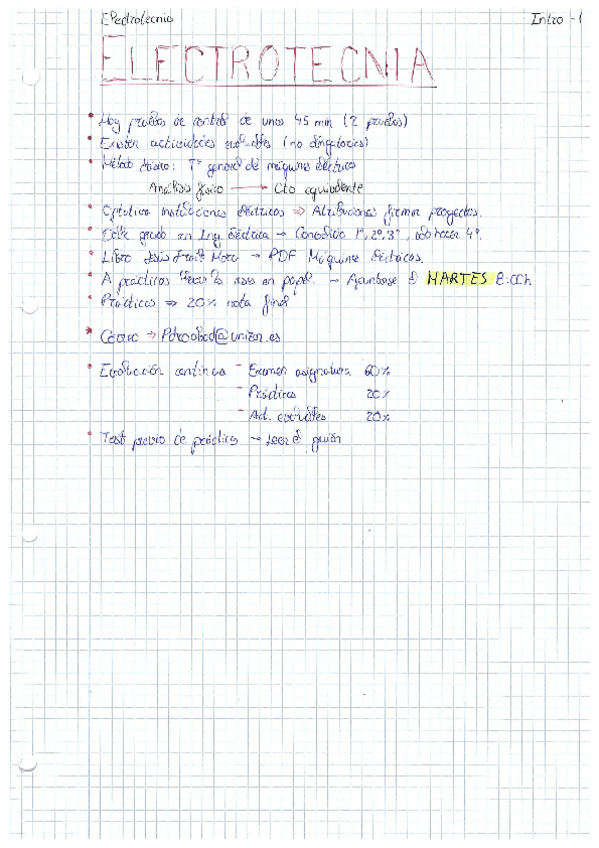 Electrotecnia
Intro - 1
ELECTROTECNIA
• Hay pruebas de control de unos 45 min (2 pruebas)
• Existen actividades evaluables (no obligatorias)
• Método básico: Tª general de máquina eléctrica
Análisis físico → Cto equivalente
• Optativa Instalaciones eléctricas ⇒ Atribuciones firmar proyectos.
• Doble grado en Ing. Eléctrica → Convalida 1º, 2º, 3º, solo hacer 4º.
• Libro Jesús Fraile Mora → PDF Máquinas Eléctricas.
• A prácticas llevar hojas en papel. → Apuntarse el MARTES 8:00h
• Prácticas ⇒ 20% nota final
* Correo → @unizar.es
• Evaluación continua - Examen asignatura 60%
- Prácticas 20%
- Act. evaluables 20%
• Test previo de práctica → Leer el guión